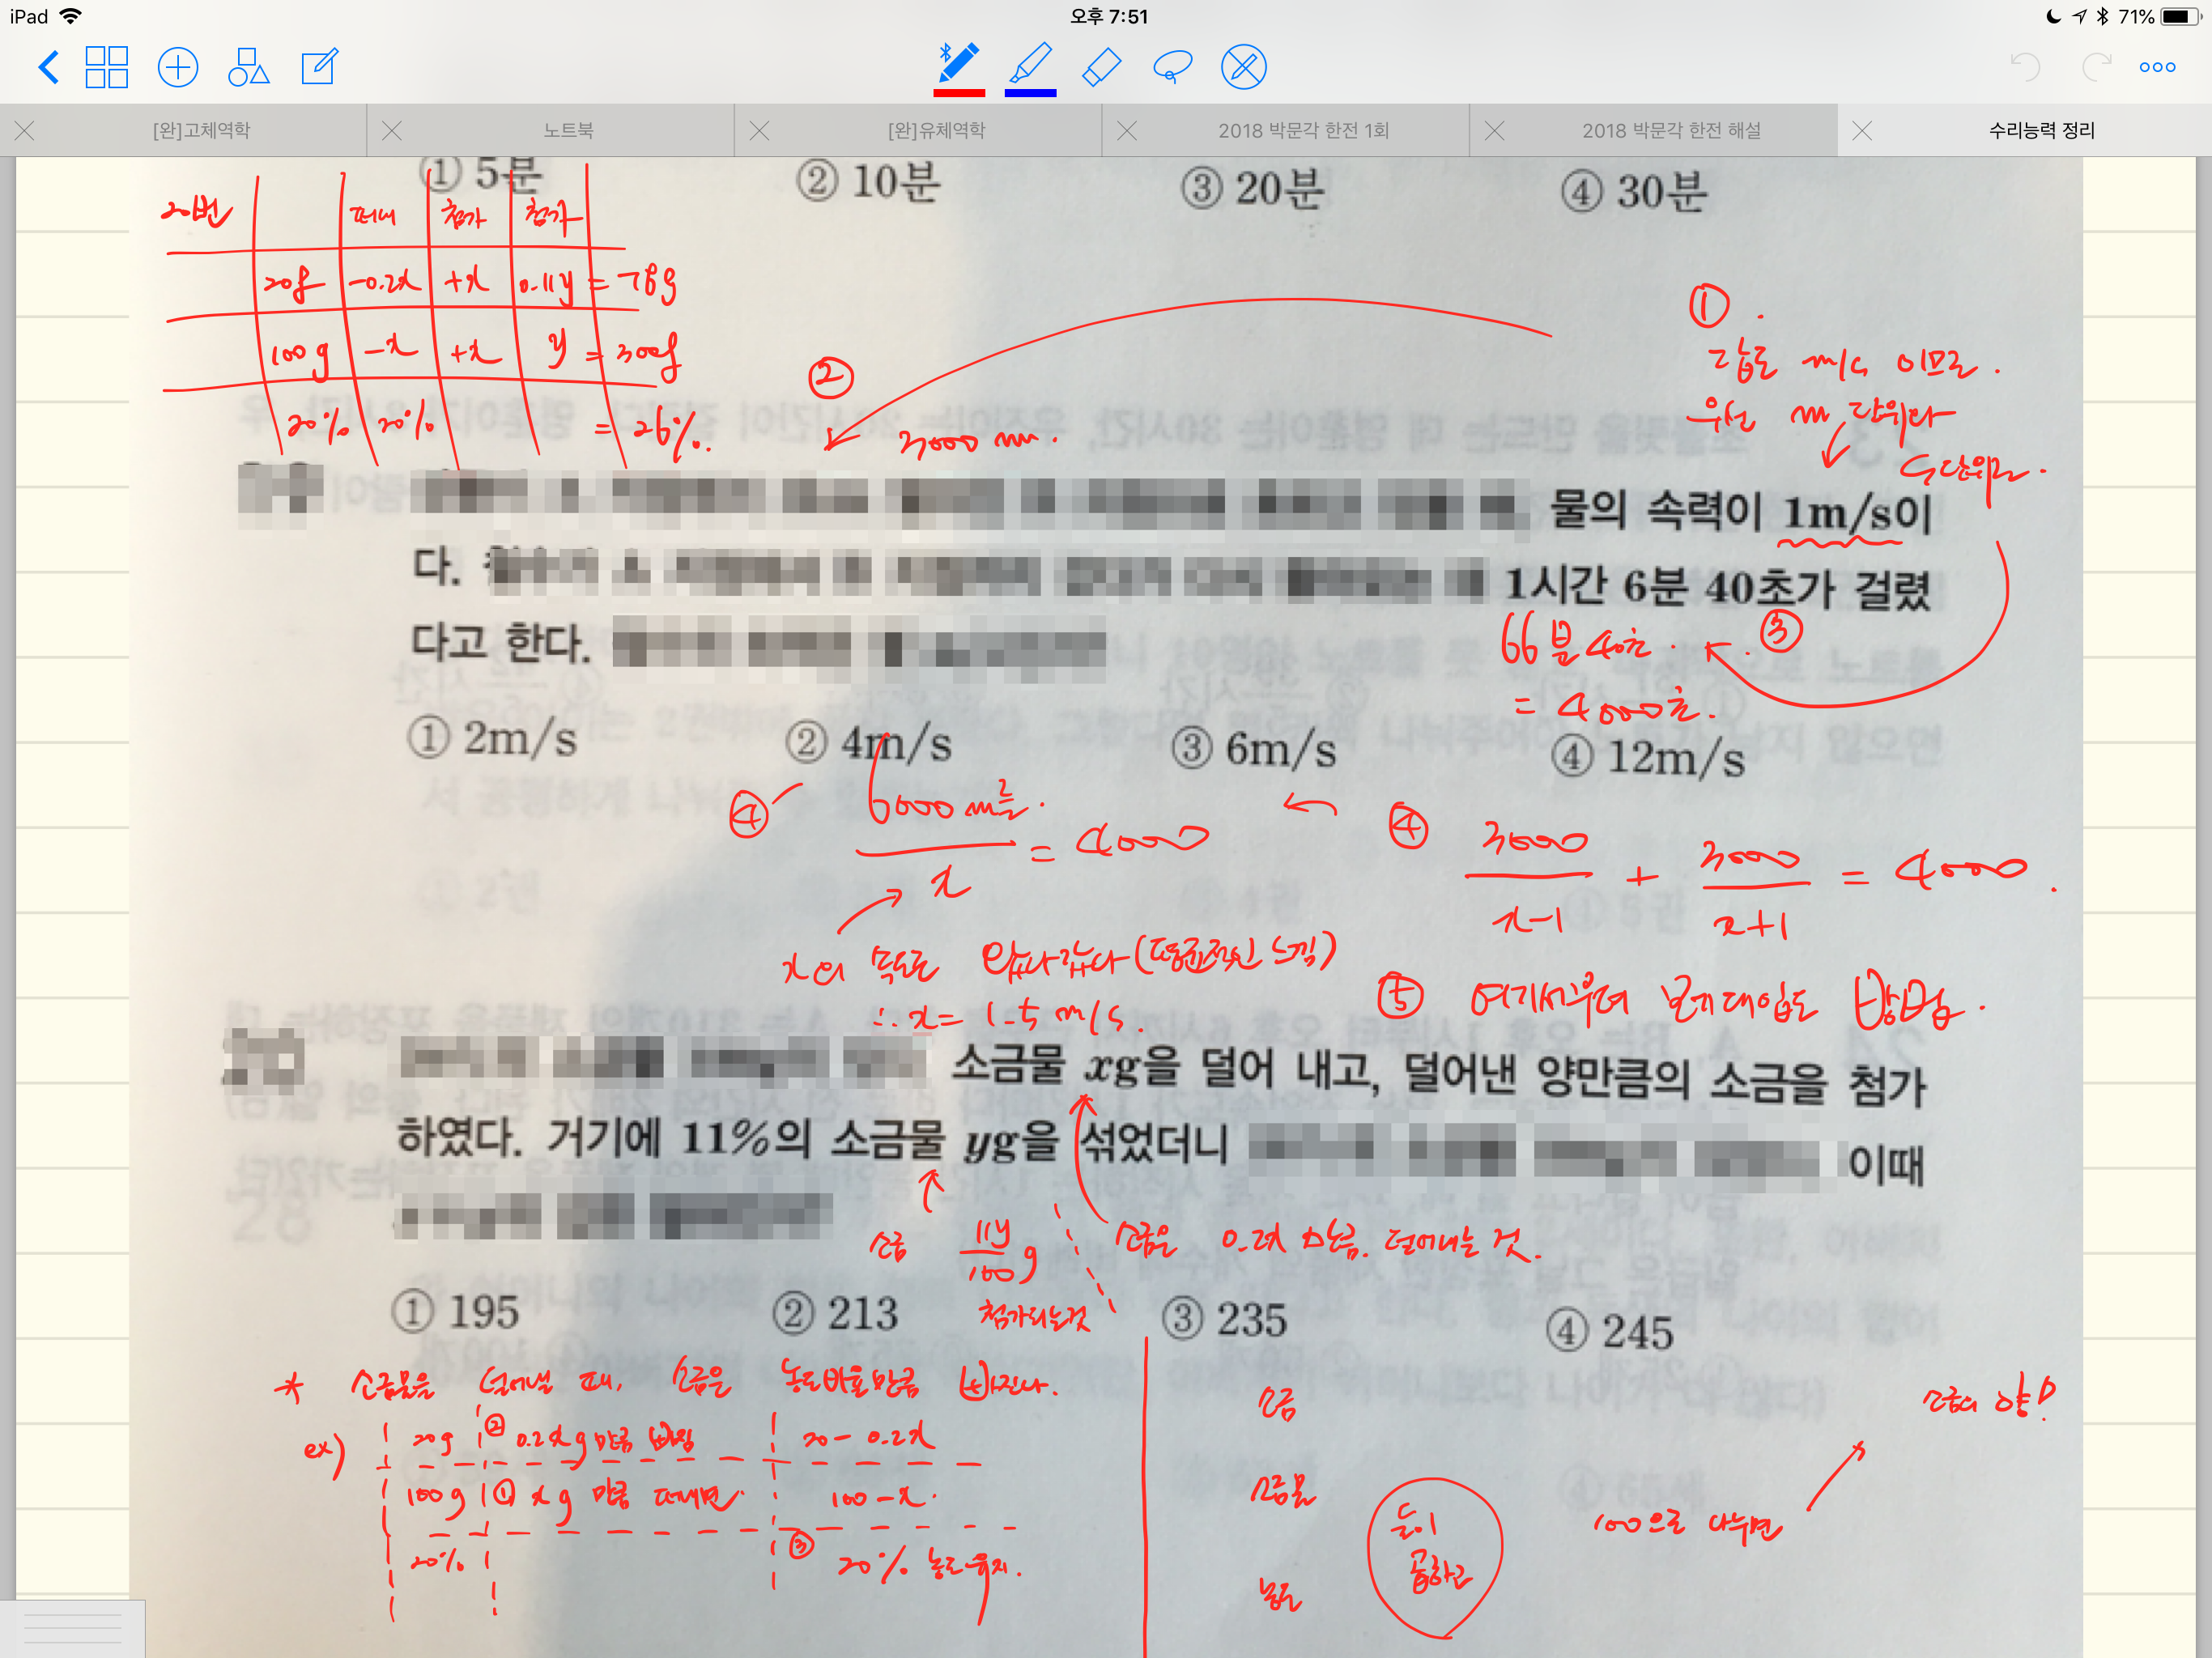 iPad
오후 7:51
71%
[완]고체역학
노트북
[완]유체역학
2018 박문각 한전 1회
2018 박문각 한전 해설
수리능력 정리
① 5분
② 10분
③ 20분
④ 30분
20번 떠내 첨가 첨가
20g -0.2x +x 0.11y = 78g
100g -x +x y = 300g
20% 20% = 26%.
①.
답도 m/s 이므로.
우선 m 단위라
s단위로.
②
3000 m.
물의 속력이 1m/s이
다.
1시간 6분 40초가 걸렸
다고 한다.
66분 40초. ③
= 4000초.
① 2m/s
② 4m/s
③ 6m/s
④ 12m/s
④ 6000 m를.
x
= 4000
④ 3000 3000
x-1 + x+1 = 4000.
x의 속도로 왔다갔다 (평균적인 느낌)
∴ x = 1.5 m/s.
⑤ 여기서부터 보기대입도 방법.
소금물 xg을 덜어 내고, 덜어낸 양만큼의 소금을 첨가
하였다. 거기에 11%의 소금물 yg을 섞었더니
이때
소금 11y/100 g
첨가되는것
소금은 0.2x 만큼. 덜어내는 것.
① 195
② 213
③ 235
④ 245
* 소금물을 덜어낼 때, 소금은 농도비율만큼 빠진다.
ex) 20g ② 0.2xg 만큼 빠짐 20 - 0.2x
100g ① xg 만큼 떠내면. 100 - x.
20% ③ 20% 농도유지.
소금
소금물
농도
둘이
곱하고
100으로 나누면
소금의 양!